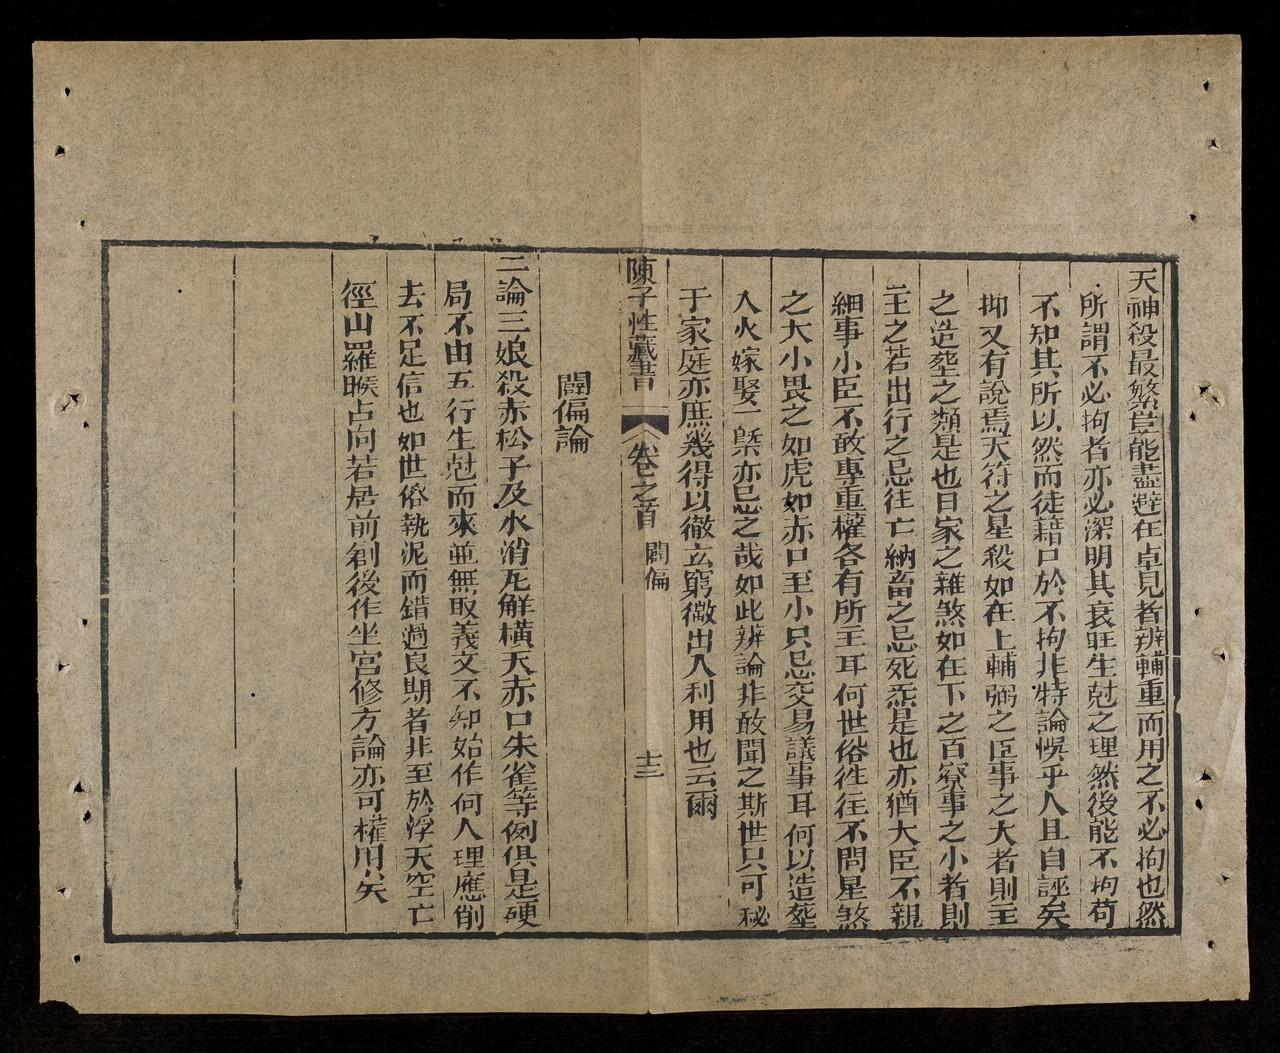 天神殺最繁豈能盡避在卓見者辨輔重而用之不必拘也然
所謂不必拘者亦必深明其衰旺生尅之理然後能不拘苟
不知其所以然而徒藉口於不拘非特論悞乎人且自誣矣
抑又有說焉天符之星殺如在上輔弼之臣事之大者則主
之造塟之類是也日家之雜煞如在下之百寮事之小者則
主之若出行之忌往亡納畜之忌死炁是也亦猶大臣不親
細事小臣不敢專重權各有所主耳何世俗徃往不問星煞
之大小畏之如虎如赤口至小只忌交易議事耳何以造塟
入火嫁娶一槩亦忌之哉如此辨論非敢聞之斯世只可秘
于家庭亦庶幾得以徹玄窮微出入利用也云爾
陳子性藏書 卷之首 闢偏 十三
闢偏論
一論三娘殺赤松子及水消瓦解橫天赤口朱雀等例俱是硬
局不由五行生尅而來並無取義文不知始作何人理應削
去不足信也如世俗執泥而錯過良期者非至於浮天空亡
徑山羅睺占向若居前創後作坐宮修方論亦可權用矣